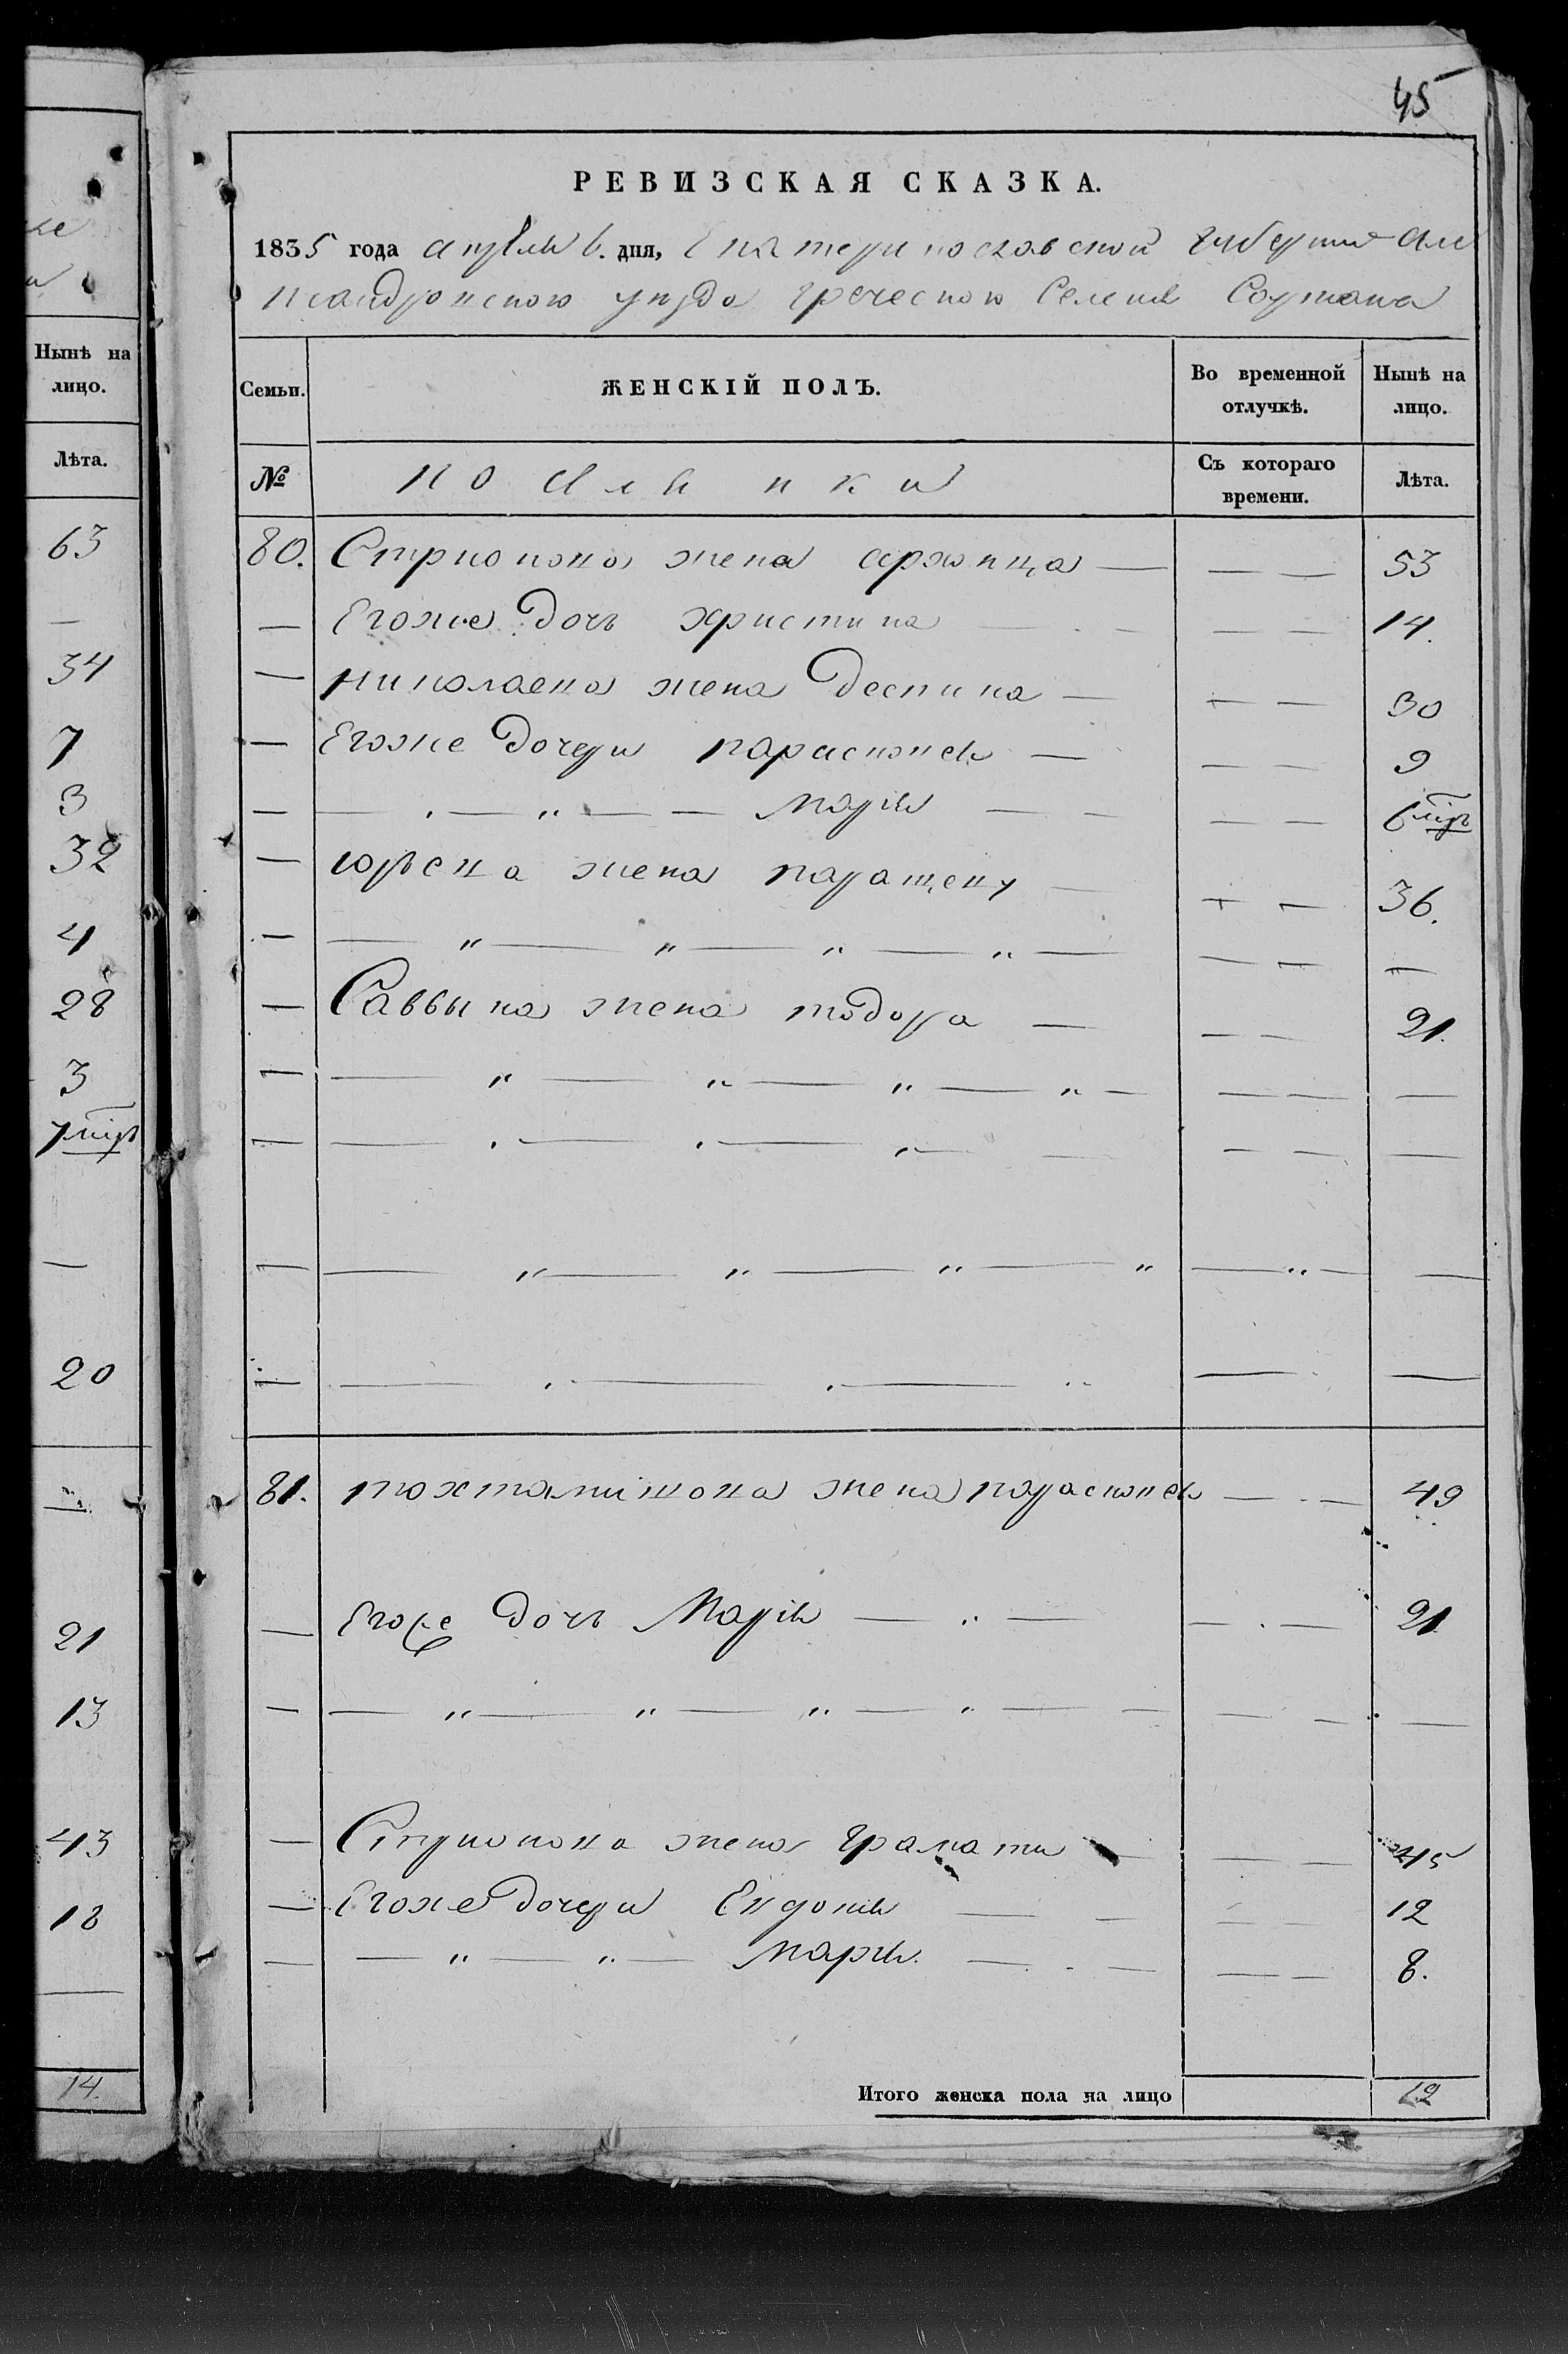 45
РЕВИЗСКАЯ СКАЗКА.
1835 года апреля 6. дня, Екатеринославской губернии Але
ксандровского уезда греческого Селения
Семьи. ЖЕНСКІЙ ПОЛЪ. Во временной отлучкѣ. Нынѣ на лицо.
№ Поселянки Съ котораго времени. Лѣта.
80. Стрионова жена — — — 53
— Егоже дочь христина — . — — — 14.
— николаева жена деспина — — — 30
— Егоже дочери парасковея — — — 9
— — . — „ — — Марія — — — — 6
— юрьева жена — — — 36.
— — „ — „ — „ — „ — — — —
— Саввына жена тодора — — — 21.
— — „ — „ — „ — „ — — — —
— — . — . — „ — — — — —
— — „ — „ — „ — „ — „ — —
— — . — . — „ — . —
81. тохтамишова жена парасковея — . — 49
— Егоже дочь Марія — „ — — . — 21
— — „ — „ — „ — „ — — — — —
— Стрионова жена Грамати — — — 45
— Егоже дочери Евдокия — — — — 12
— — „ — „ — Мария. — . — — — 8.
Итого женска пола на лицо 12
Нынѣ на
лицо.
Лѣта.
63
—
34
7
3
32
4
28
3
7
—
20
21
13
43
18
—
14.